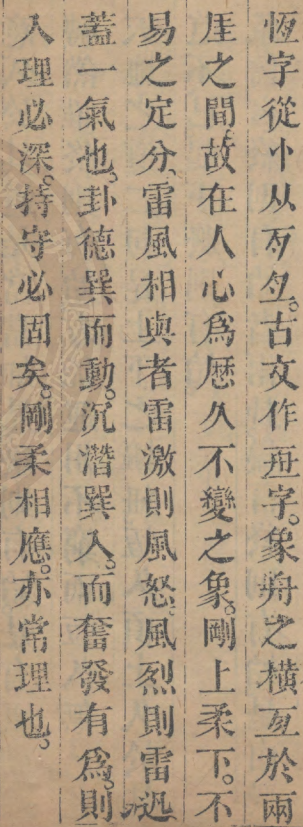 恆字從忄从歹夕。古文作亙字。象舟之橫亙於兩
厓之間。故在人心爲厯久不變之象。剛上柔下。不
易之定分。雷風相與者雷激則風怒。風烈則雷迅
蓋一氣也。卦德巽而動。沉潛巽入。而奮發有爲。則
入理必深。持守必固矣。剛柔相應。亦常理也。